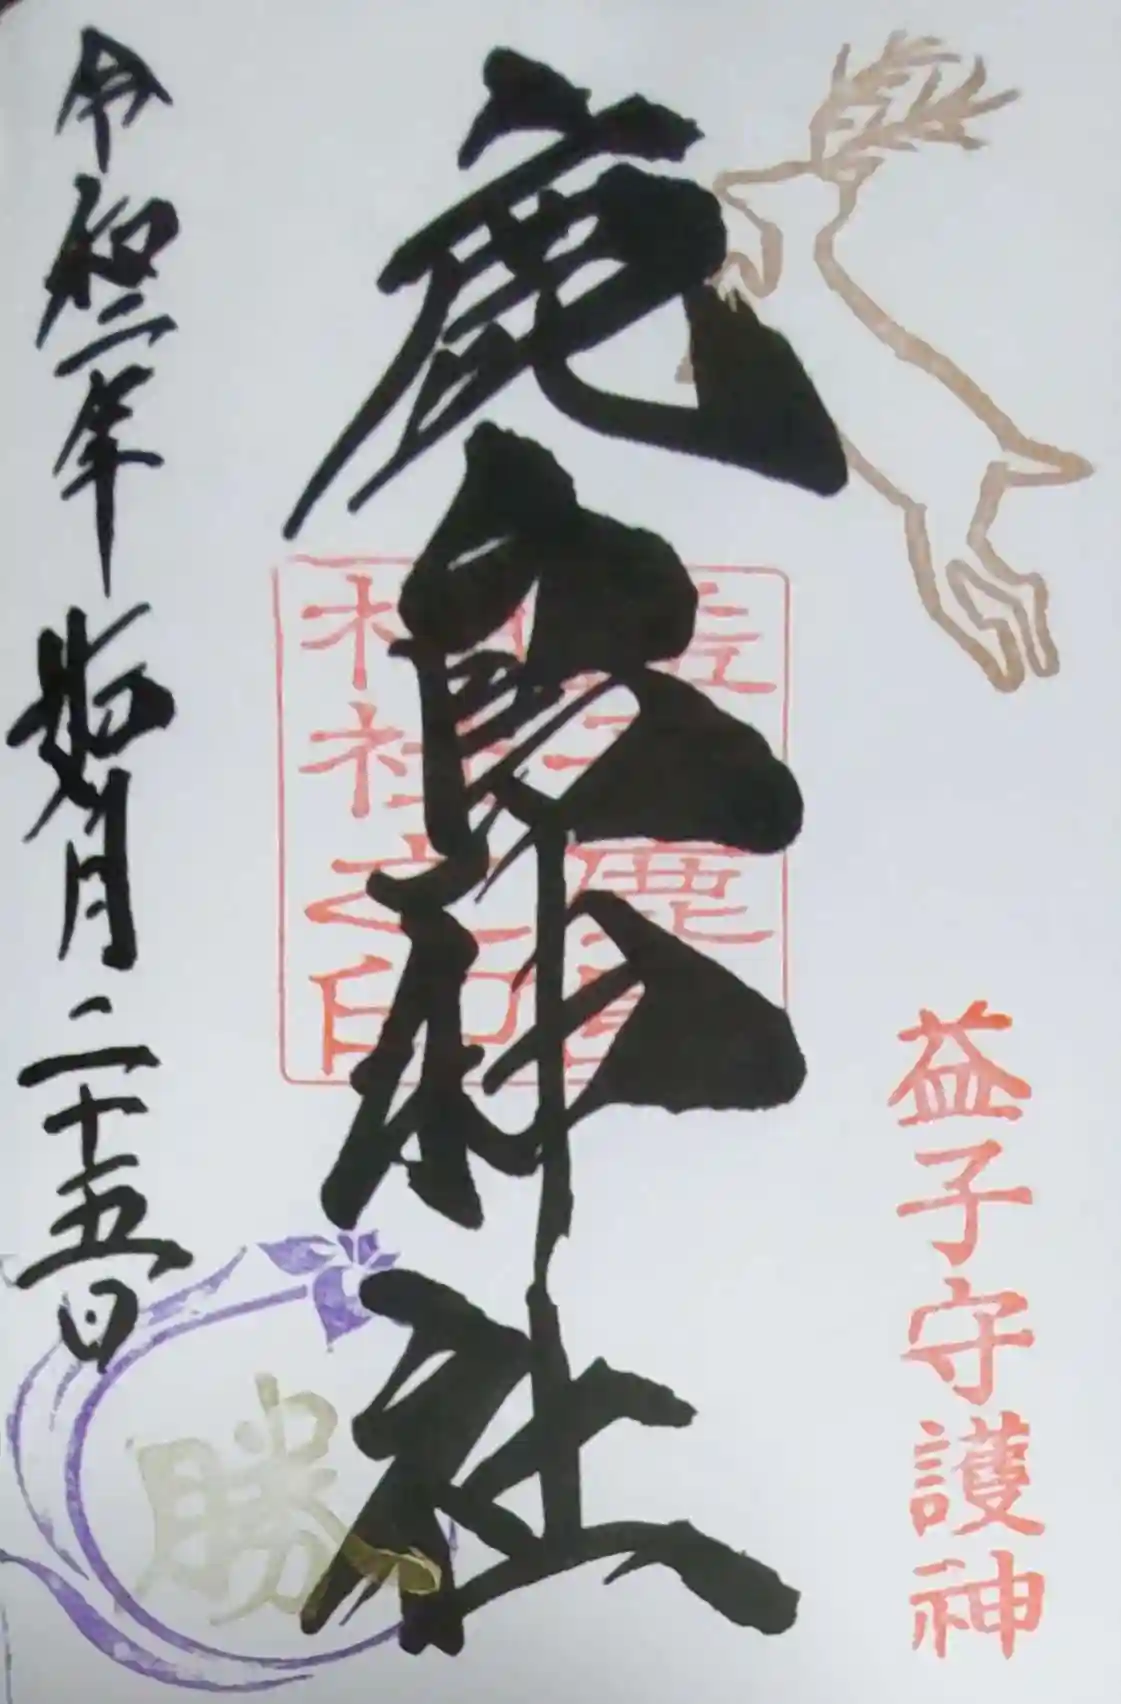 益子守護神
鹿島神社
益子鹿島
神社之印
令和二年如月二十五日
勝